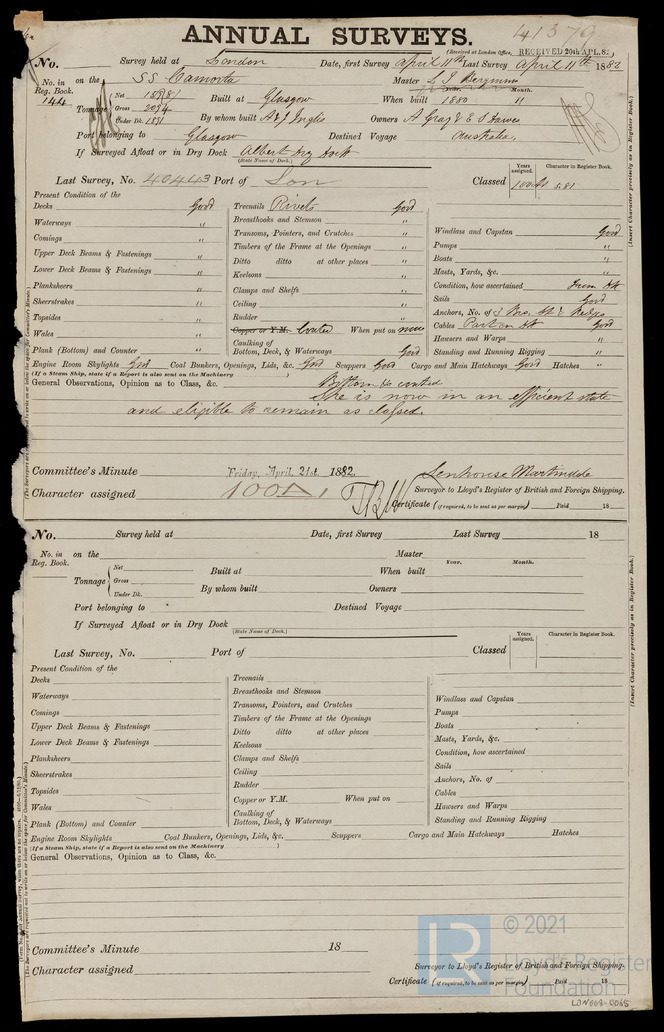 41379
ANNUAL SURVEYS.
(Received at London Office, RECEIVED 20th APL. 82
No. Survey held at London Date, first Survey April 11th Last Survey April 11th 1882
No. in Reg. Book. on the SS Camorta Master
144 Tonnage Net Gross 2094 Under Dk. 1831 Built at Glasgow When built 1880 Month. "
By whom built A & J Inglis Owners A Gray & E S Dawes
Port belonging to Glasgow Destined Voyage Australia.
If Surveyed Afloat or in Dry Dock Albert Dry Dock
(State Name of Dock.)
Last Survey, No. 40443 Port of Lon Classed Years assigned. 100A1 Character in Register Book. 5.81
Present Condition of the
Decks Good
Waterways "
Comings "
Upper Deck Beams & Fastenings "
Lower Deck Beams & Fastenings "
Planksheers "
Sheerstrakes "
Topsides "
Wales "
Plank (Bottom) and Counter "
Treenails Rivets Good
Breasthooks and Stemson "
Transoms, Pointers, and Crutches "
Timbers of the Frame at the Openings "
Ditto ditto at other places "
Keelsons "
Clamps and Shelfs "
Ceiling "
Rudder "
Copper or Y.M. Coated When put on now
Caulking of Bottom, Deck, & Waterways Good
Windlass and Capstan Good
Pumps "
Boats "
Masts, Yards, &c. "
Condition, how ascertained From Dk
Sails Good
Anchors, No. of
Cables Part on Dk Good
Hawsers and Warps "
Standing and Running Rigging "
Engine Room Skylights Good Coal Bunkers, Openings, Lids, &c. Good Scuppers Good Cargo and Main Hatchways Good Hatches "
(If a Steam Ship, state if a Report is also sent on the Machinery )
General Observations, Opinion as to Class, &c. Bottom coated
She is now in an efficient state
and eligible to remain as classed.
Committee's Minute Friday, April, 21st. 1882 Senhouse Martindale
Character assigned 100A1 Surveyor to Lloyd's Register of British and Foreign Shipping.
Certificate (if required, to be sent as per margin) Paid 18
(Insert Character precisely as in Register Book.)
No. Survey held at Date, first Survey Last Survey 18
No. in Reg. Book. on the Master
Tonnage Net Gross Under Dk. Built at When built Year. Month.
By whom built Owners
Port belonging to Destined Voyage
If Surveyed Afloat or in Dry Dock
(State Name of Dock.)
Last Survey, No. Port of Classed Years assigned. Character in Register Book.
Present Condition of the
Decks
Waterways
Comings
Upper Deck Beams & Fastenings
Lower Deck Beams & Fastenings
Planksheers
Sheerstrakes
Topsides
Wales
Plank (Bottom) and Counter
Treenails
Breasthooks and Stemson
Transoms, Pointers, and Crutches
Timbers of the Frame at the Openings
Ditto ditto at other places
Keelsons
Clamps and Shelfs
Ceiling
Rudder
Copper or Y.M. When put on
Caulking of Bottom, Deck, & Waterways
Windlass and Capstan
Pumps
Boats
Masts, Yards, &c.
Condition, how ascertained
Sails
Anchors, No. of
Cables
Hawsers and Warps
Standing and Running Rigging
Engine Room Skylights Coal Bunkers, Openings, Lids, &c. Scuppers Cargo and Main Hatchways Hatches
(If a Steam Ship, state if a Report is also sent on the Machinery )
General Observations, Opinion as to Class, &c.
Committee's Minute 18
Character assigned Surveyor to Lloyd's Register of British and Foreign Shipping.
Certificate (if required, to be sent as per margin) Paid 18
(Insert Character precisely as in Register Book.)
LR © 2021
Lloyd's Register
Foundation
LON668-0065